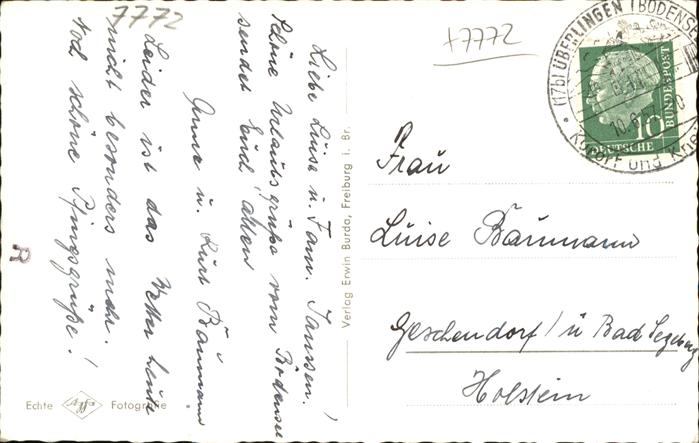 7772
Liebe Luise u. Fam. Janssen!
Schöne Urlaubsgrüße vom Bodensee
sendet Euch allen
Anne u. Kurt Baumann
Leider ist das Wetter heute
nicht besonders mehr.
Noch schöne Pfingstgrüße!
R
Echte Agfa Fotografie
Verlag Erwin Burda, Freiburg i. Br.
+7772
(17b) ÜBERLINGEN (BODENSEE)
10.6.57
Kurort und
10
DEUTSCHE
BUNDESPOST
Frau
Luise Baumann
Geschendorf / ü Bad Segeberg
Holstein